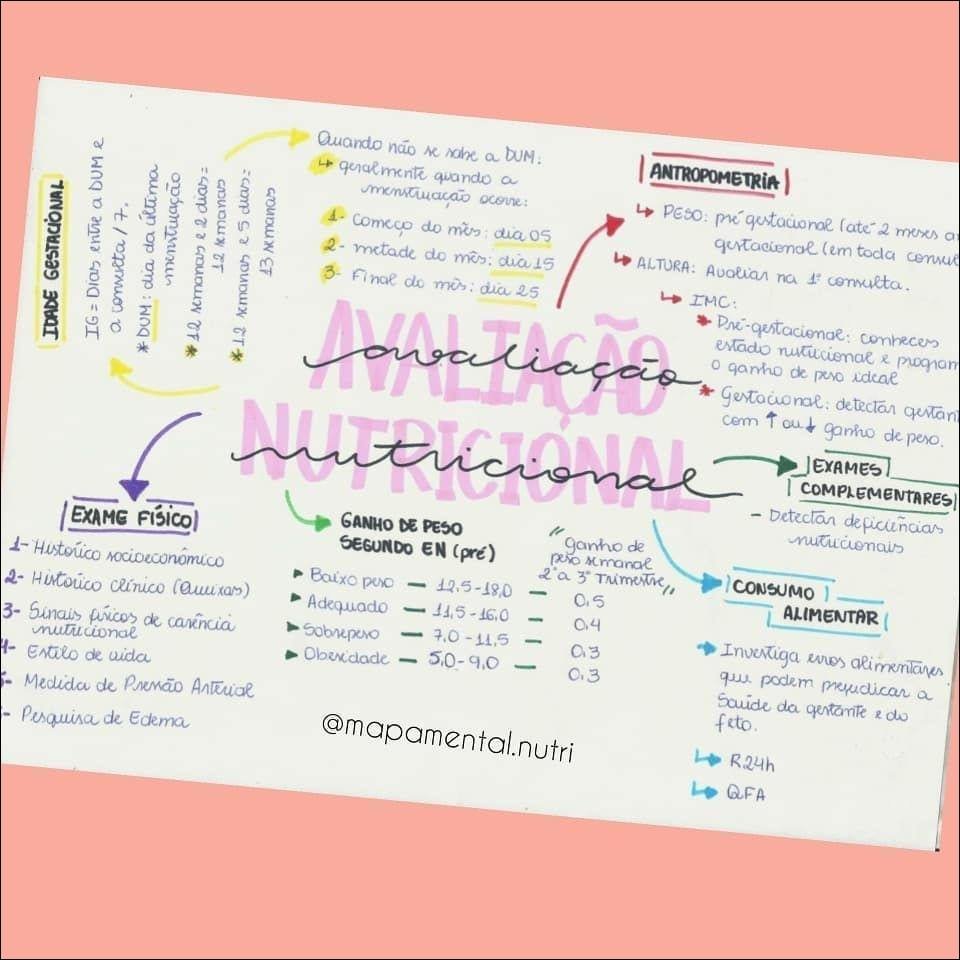 IDADE GESTACIONAL
IG = Dias entre a DUM e
a consulta / 7.
* DUM: dia da última
menstruação
* 12 semanas e 2 dias =
12 semanas
* 12 semanas e 5 dias =
13 semanas
Quando não se sabe a DUM:
geralmente quando a
menstruação ocorre:
1- Começo do mês: dia 05
2- metade do mês: dia 15
3- Final do mês: dia 25
ANTROPOMETRIA
PESO: pré gestacional (até 2 meses
gestacional (em toda
ALTURA: Avaliar na 1ª consulta.
IMC:
* Pré-gestacional: conhecer
estado nutricional e
o ganho de peso ideal
* Gestacional: detectar
com ↑ ou ↓ ganho de peso.
AVALIAÇÃO
avaliação
NUTRICIONAL
nutricional
EXAMES
COMPLEMENTARES
- Detectar deficiências
nutricionais
EXAME FÍSICO
1- Histórico socioeconômico
2- Histórico clínico (Queixas)
3- Sinais físicos de carência
nutricional
4- Estilo de vida
- Medida de Pressão Arterial
- Pesquisa de Edema
GANHO DE PESO
SEGUNDO EN (pré)
"Ganho de
peso semanal
2º a 3º Trimestre"
Baixo peso — 12,5-18,0 — 0,5
Adequado — 11,5-16,0 — 0,4
Sobrepeso — 7,0-11,5 — 0,3
Obesidade — 5,0-9,0 — 0,3
CONSUMO
ALIMENTAR
Investiga erros alimentares
que podem prejudicar a
Saúde da gestante e do
feto.
R24h
QFA
@mapamental.nutri